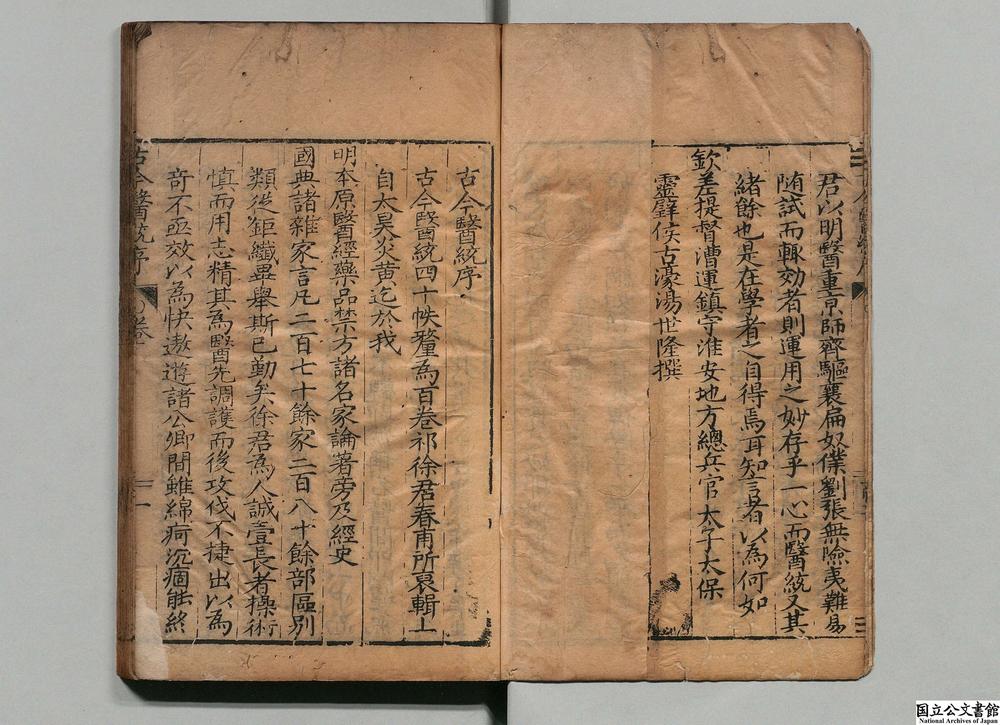 君以明醫重京師齊驅襄扁奴僕劉張無險夷難易
随試而輙効者則運用之妙存乎一心而醫統又其
緒餘也是在學者之自得焉耳知言者以為何如
欽差提督漕運鎮守淮安地方總兵官太子太保
靈璧侯古濠湯世隆撰
古今醫統序
古今醫統四十帙釐為百卷祁徐君春甫所裒輯上
自太昊炎黄迄於我
明本原醫經藥品禁方諸名家論著旁及經史
國典諸雜家言凢二百七十餘家二百八十餘部區別
類從鉅纖畢舉斯已勤矣徐君為人誠壹長者操術
慎而用志精其為醫先調護而後攻伐不捷出以為
奇不亟效以為快遨遊諸公卿間雖綿痾沉痼能終
古今醫統序
卷
一
国立公文書館
National Archives of Japan